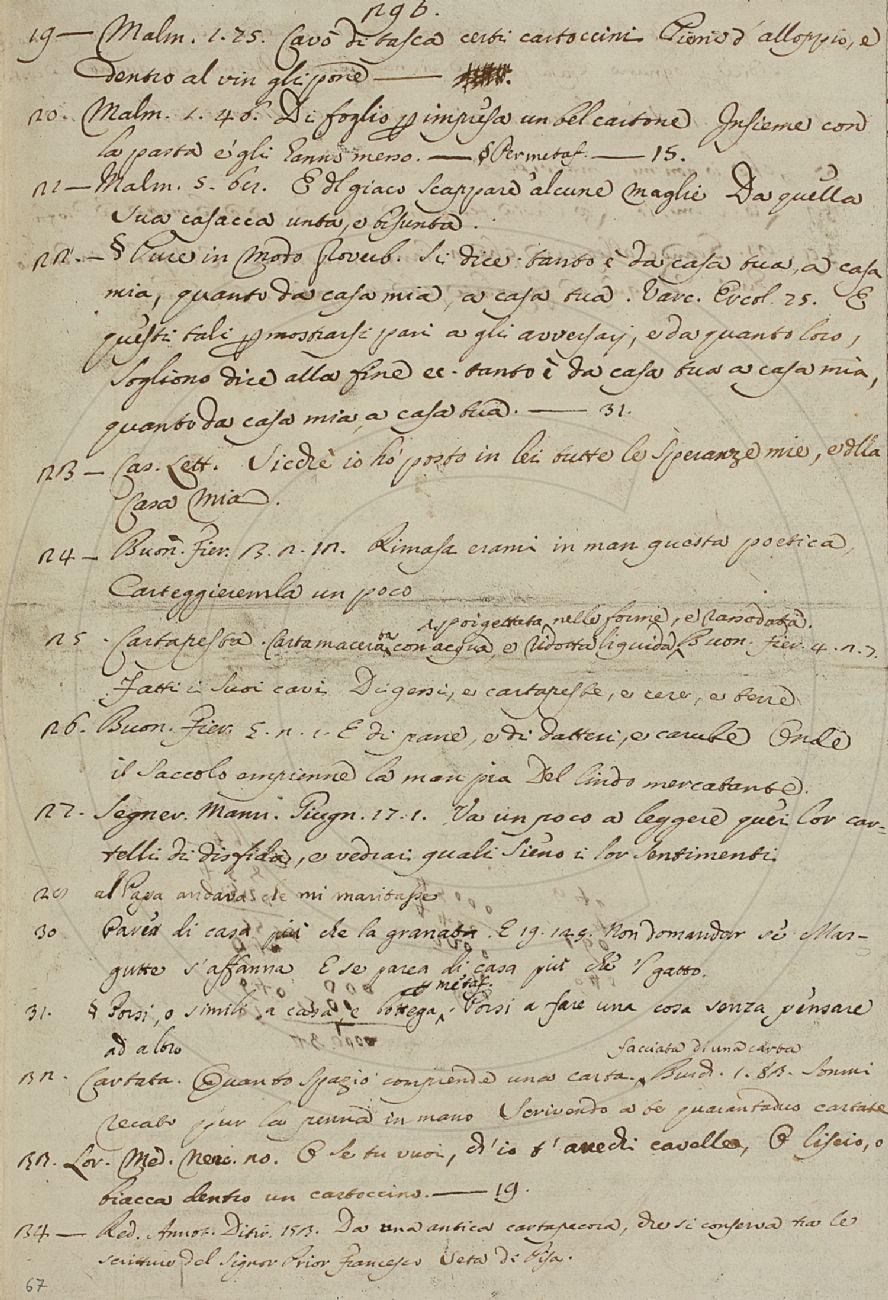 296.
19 — Malm. 1. 25. Cavò di tasca certi cartoccini Pieni d'alloppio, e
dentro al vin gli pone —
20. Malm. 1. 46. Di foglio p impresa un bel cartone Insieme con
la pasta e gli hanno meno. — § Per metaf. — 15.
21 — Malm. 5. 62. E dl giaco scappare alcune maglie Da quella
sua casacca unta, e bisunta.
22. — § Pure in modo proverb. Si dice: tanto è da casa tua, a casa
mia, quanto da casa mia, a casa tua. Varc. Ercol. 25. E
questi tali p mostrarsi pari a gli avversarj, e da quanto loro,
sogliono dire alla fine ec. tanto è da casa tua a casa mia,
quanto da casa mia, a casa tua. — 31.
23 — Cas. Lett. Sicchè io hò posto in lei tutte le speranze mie, e dlla
Casa mia.
24 — Buon. Fier. 3. 2. 12. Rimasa erami in man questa poetica,
Carteggieremla un poco
e poi gettata nelle forme, e rassodata.
25. Cartapesta. Carta macerata con acqua, e ridotta liquida, Buon. Fier. 4. 2. 7.
Fatti i suoi cavi Di gessi, e cartapeste, e cere, e terre
26. Buon. Fier. 5. 2. 1. E di pane, e di datteri, e carube Onde
il saccolo empienne la man pia Del lindo mercatante.
27. Segner. Mann. Giugn. 17. 1. Va un poco a leggere quei lor car-
telli di disfida, e vedrai quali sieno i lor sentimenti.
al Papa andava che mi maritasse
30 Parea di casa più che la granata. E 19. 149. Non domandar se Mar-
gutte s'affanna E se parea di casa più che 'l gatto.
metaf.
31. § Porsi, o simili, a casa, e bottega, Porsi a fare una cosa senza pensare
ad altro
facciata di una carta
32. Cartata. Quanto spazio comprende una carta. Burch. 1. 83. Sommi
recato pur la penna in mano Scrivendo a te quarantadue cartate
33. Lor. Med. Nenc. 20. O se tu vuoi, ch'io t'arrechi cavelle, O liscio, o
biacca dentro un cartoccino. — 19.
34 — Red. Annot. Ditir. 153. Da una antica cartapecora, che si conserva tra le
scritture del Signor Prior Francesco Seta di Pisa.
67